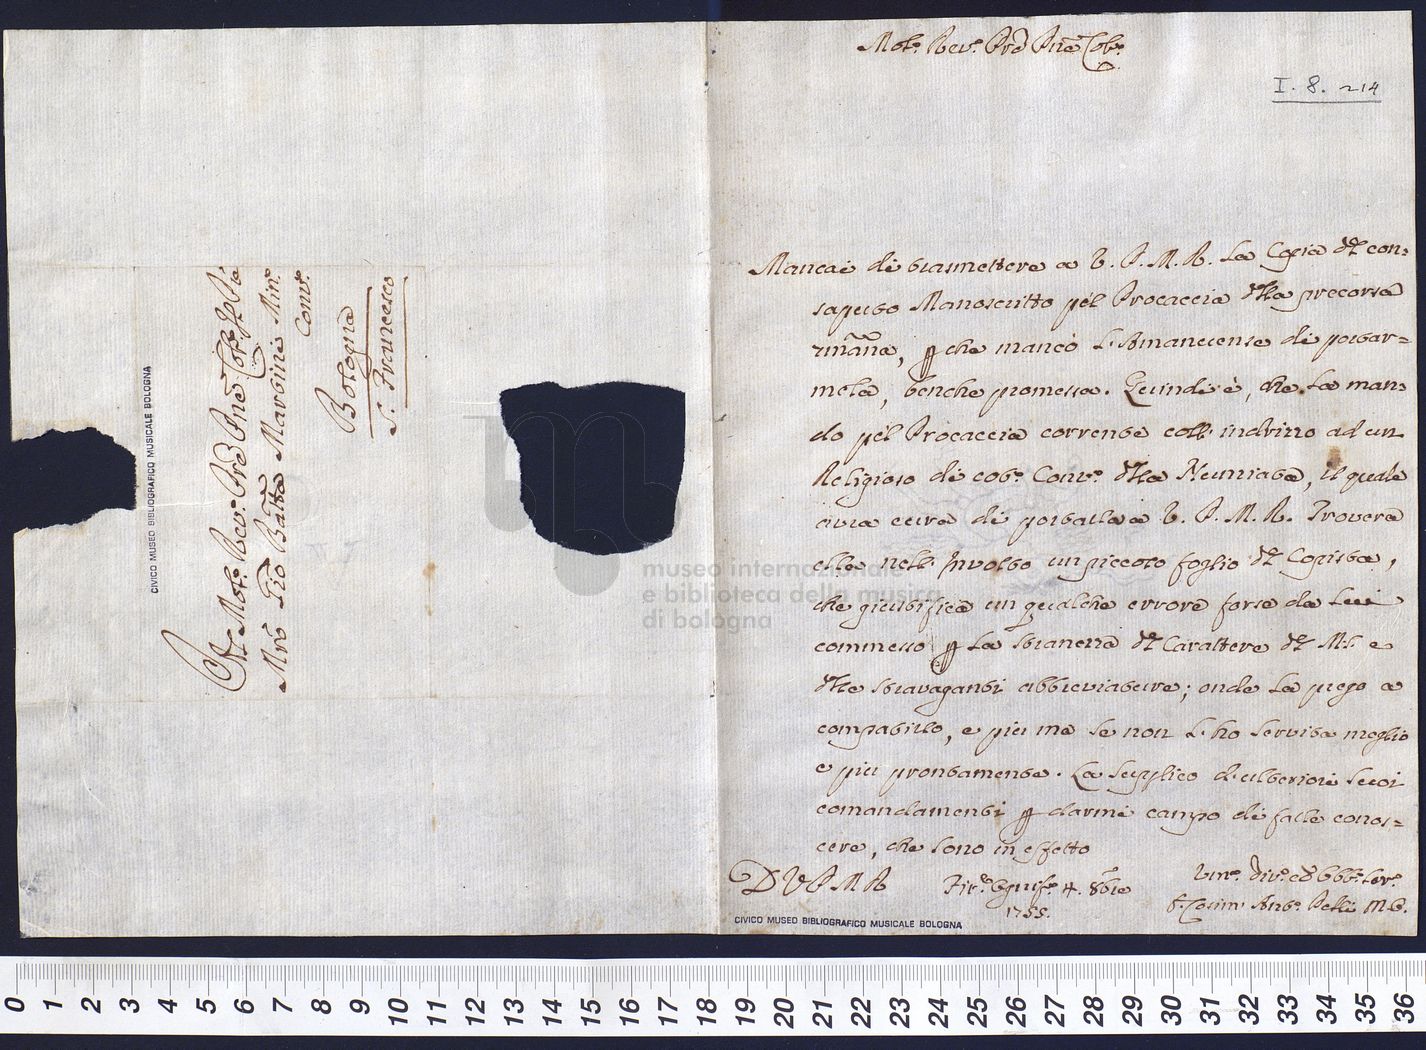 Molto Rev.o Prē Pnē Col.mo
I. 8. 214
Mancai di trasmettere a V. P. M. R. la Copia del con-
saputo Manoscritto pel Procaccia della precorsa
ttmāna, p che mancò l'Amanuense di portar=
mela, benche promessa. Quindi è, che la man-
do pel Procaccia corrente coll'indrizzo ad un
Religioso di cot.o Conv.o della Nunziata, il quale
avrà cura di portarla a V. P. M. R. Troverà
ella nell'Involto un piccolo foglio del Copista,
che giustifica un qualche errore forse da Lui
commesso p la stranezza del Carattere del Ms. e
delle stravaganti abbreviature; onde La prego a
compatirlo, e più me se non l'ho servita meglio
e più prontamente. La supplico d'ulteriori suoi
comandamenti p darmi campo di farle conos=
cere, che sono in effetto
D V P M R
4. 8bre
1755.
Um.o Div.o ed Obb.o Ser.e
F. Cosim. Ant.o Pelli M.C.
CIVICO MUSEO BIBLIOGRAFICO MUSICALE BOLOGNA
Al Molto Rev.o Prē Pnē Col.mo Il Prē
Mrō Gio Batta Martini Min.
Conv.
Bologna
S. Francesco
CIVICO MUSEO BIBLIOGRAFICO MUSICALE BOLOGNA
museo internazionale
e biblioteca della musica
di bologna
0 1 2 3 4 5 6 7 8 9 10 11 12 13 14 15 16 17 18 19 20 21 22 23 24 25 26 27 28 29 30 31 32 33 34 35 36